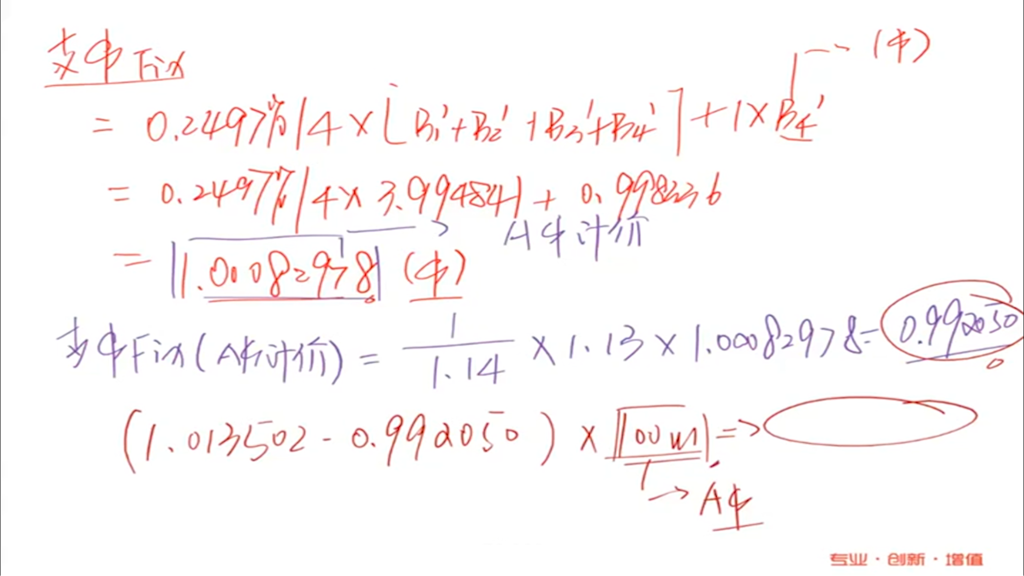 支中Fix -- (中)
= 0.2497%/4 × [B1'+B2'+B3'+B4'] + 1×B4'
= 0.2497%/4 × 3.994841 + 0.998236
A中计价
= 1.00082978 (中)
支中Fix(A中计价) = 1/1.14 × 1.13 × 1.00082978 = 0.992050
(1.013502 - 0.992050) × 100m =>
→ A中
专业·创新·增值